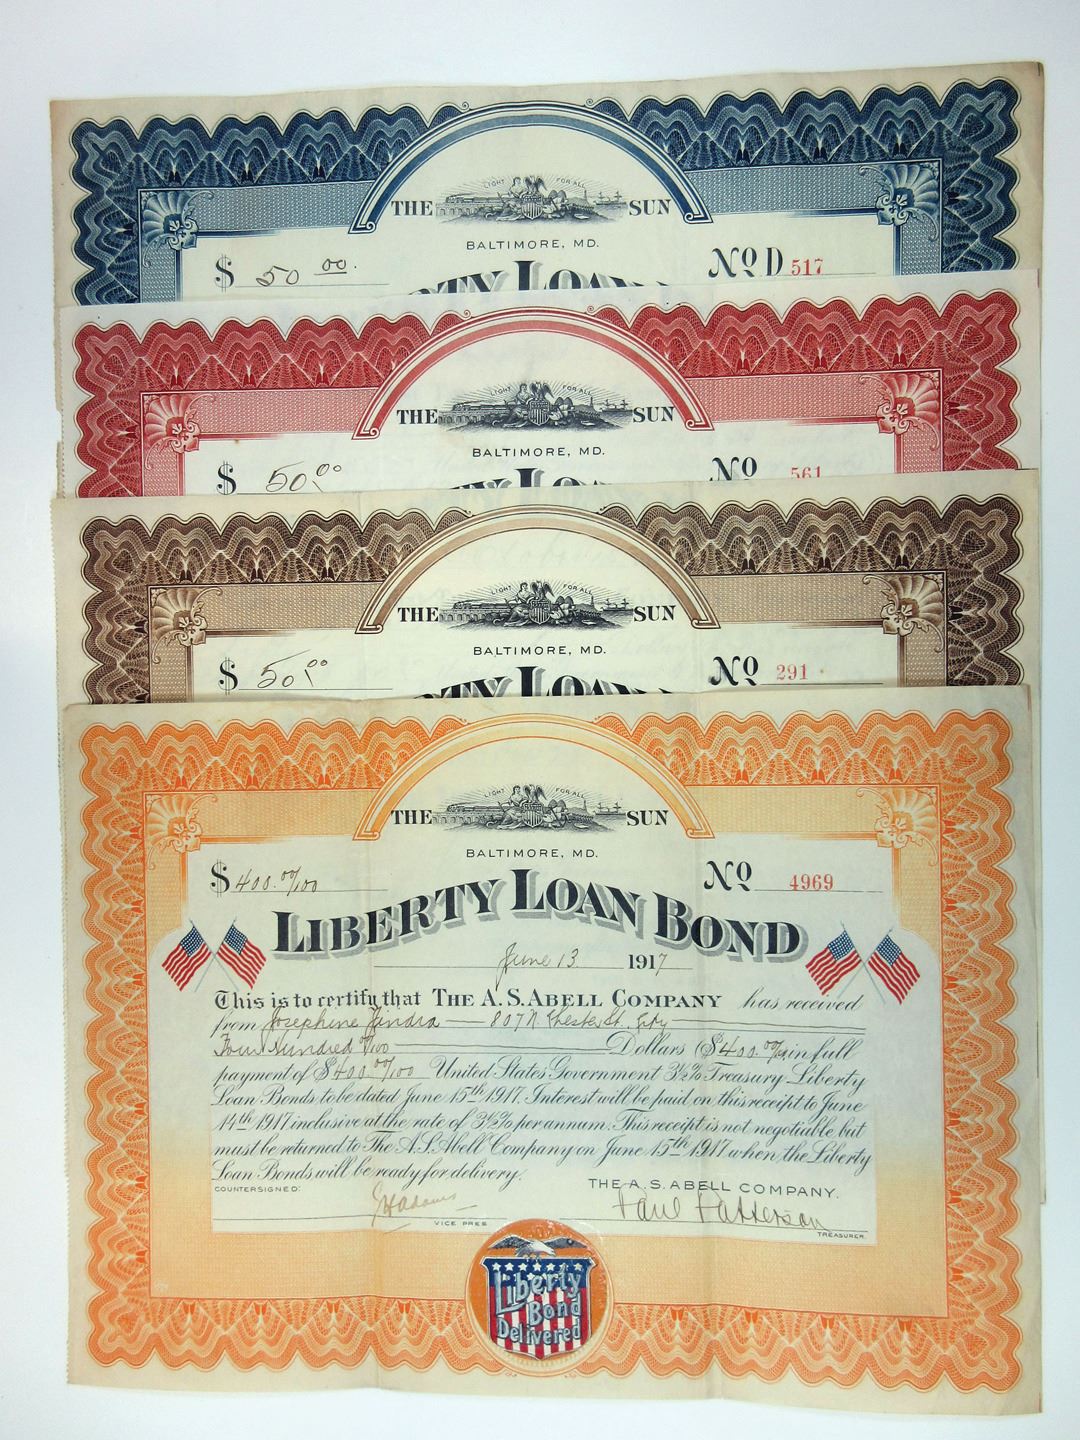 LIGHT FOR ALL
THE SUN
BALTIMORE, MD.
$ 50 00. No D 517
TY LOAN
LIGHT FOR ALL
THE SUN
BALTIMORE, MD.
$ 50.00 No 561
TY LOAN
LIGHT FOR ALL
THE SUN
BALTIMORE, MD.
$ 50.00 No 291
TY LOAN
LIGHT FOR ALL
THE SUN
BALTIMORE, MD.
$ 400.00/100 No 4969
LIBERTY LOAN BOND
June 13 1917
This is to certify that THE A. S. ABELL COMPANY has received
from Josephine Jindra — 807 N. Chester St. City
Four Hundred 00/100 Dollars ($400.00/100) in full
payment of $400.00/100 United States Government 3½% Treasury Liberty
Loan Bonds to be dated June 15th 1917. Interest will be paid on this receipt to June
14th 1917 inclusive at the rate of 3½% per annum. This receipt is not negotiable but
must be returned to The A. S. Abell Company on June 15th 1917 when the Liberty
Loan Bonds will be ready for delivery.
COUNTERSIGNED: THE A. S. ABELL COMPANY.
Adams Paul Patterson
VICE PRES TREASURER.
Liberty
Bond
Delivered